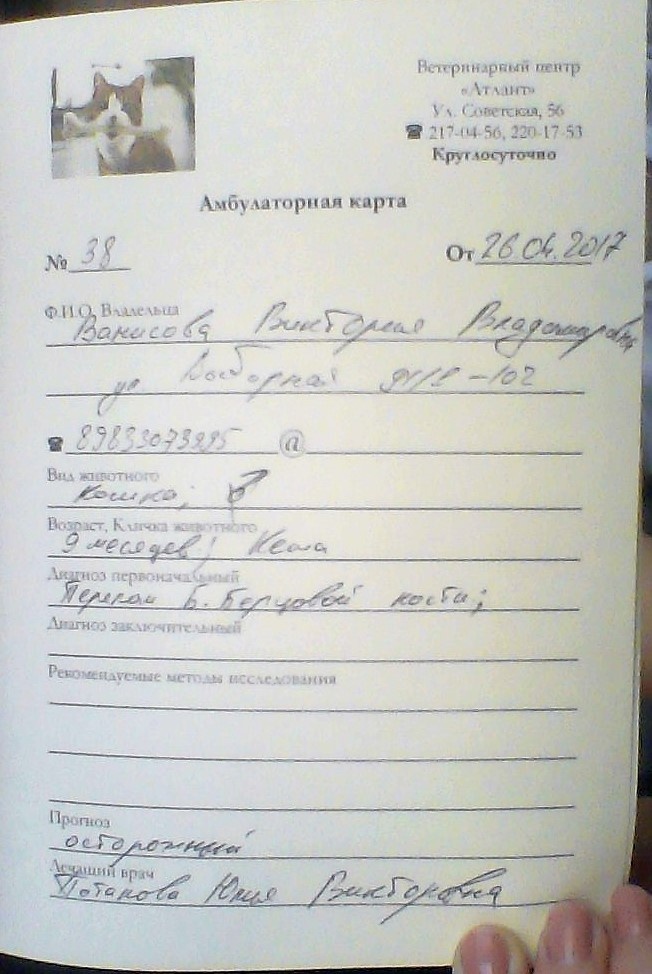 Ветеринарный центр
«Атлант»
Ул. Советская, 56
☎ 217-04-56, 220-17-53
Круглосуточно
Амбулаторная карта
№ 38 От 26.04.2017
Ф.И.О. Владельца
Виктория Владимировна
ул.
☎ @
Вид животного
Кошка; ♂
Возраст, Кличка животного
9 месяцев; Кеша
Диагноз первоначальный
Перелом Б. Берцовой кости;
Диагноз заключительный
Рекомендуемые методы исследования
Прогноз
осторожный
Лечащий врач
Потапова Юлия Викторовна